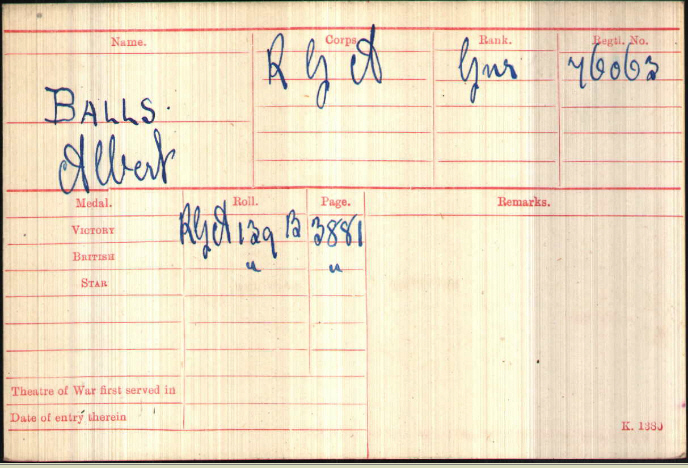 Name. Corps. Rank. Regtl. No.
R G A Gnr 76063
BALLS.
Albert
Medal. Roll. Page. Remarks.
VICTORY RGA 139 B 3881
BRITISH " "
STAR
Theatre of War first served in
Date of entry therein
K. 1380